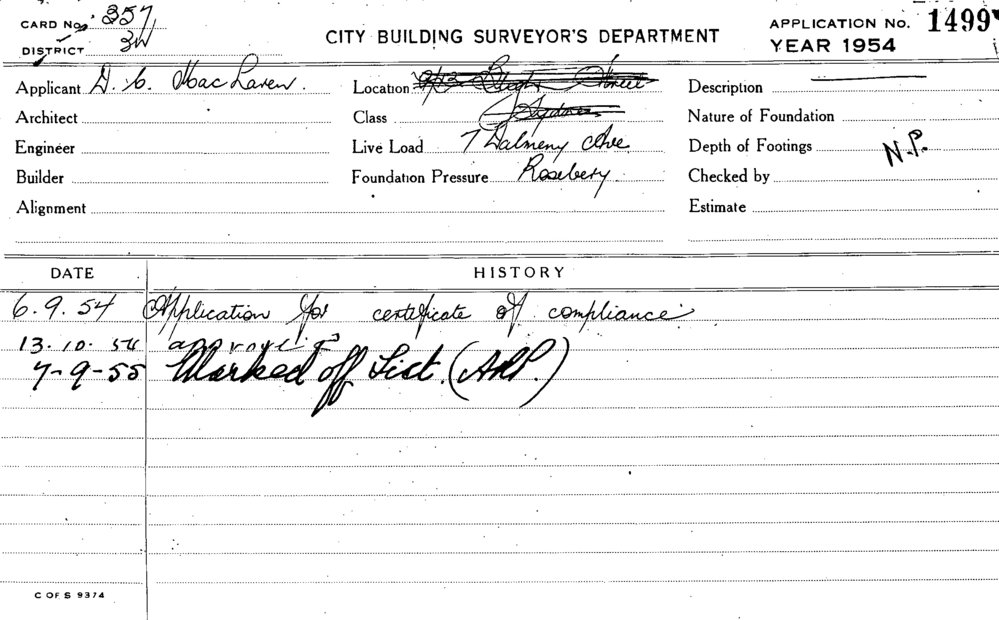 CARD No. 357
DISTRICT 3W
CITY BUILDING SURVEYOR'S DEPARTMENT
APPLICATION No. 1499
YEAR 1954
Applicant D. C. MacLaren.
Architect
Engineer
Builder
Alignment
Location Street
Class Sydney
Live Load 7 Dalmeny Ave
Foundation Pressure Rosebery.
Description
Nature of Foundation
Depth of Footings N.P.
Checked by
Estimate
DATE HISTORY
6.9.54 Application for certificate of compliance
13.10.54 approved
7-9-55 Marked off List. (ARP.)
C OF S 9374